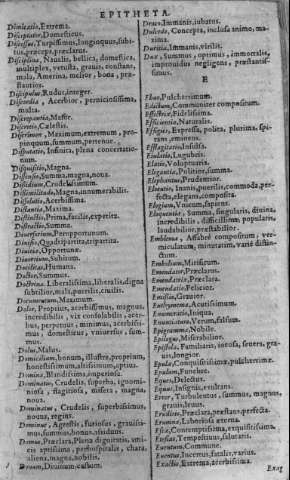 EPITHETA.
Dimicatio, Extrema.
Disceptator, Domesticus.
Discessus, Turpissimus, longinquus, subi-
tus, præceps, præclarus.
Disciplina, Naualis, bellica, domestica,
multiplex, vetusta, grauis, constans,
mala, Amerina, melior, bona, præ-
stantior.
Discipulus, Rudus, integer.
Discordia, Acerbior, perniciosissima,
multa.
Discrepantia, Maior.
Discretio, Cælestis.
Discrimen, Maximum, extremum, pro-
pinquum, summum, pertenue.
Disputatio, Infinita, plena concertatio-
num.
Disquisitio, Magna.
Dissensio, Summa, magna, noua.
Dissidium, Crudelissimum.
Dissimilitudo, Magna, innumerabilis.
Dissolutio, Acerbissima.
Distantia, Maxima.
Distinctio, Prima, facilis, expedita.
Districtio, Summa.
Diuersorium, Peropportunum.
Diuisio, Quadripartita, tripartita.
Diuitiæ, Opportunæ.
Diuortium, Subitum.
Docilitas, Humana.
Doctor, Summus.
Doctrina, Liberalissima, liberalis, digna
subtilior, mala, puerilis, crudis.
Documentum, Maximum.
Dolor, Proprius, acerbissimus, magnus,
incredibilis, vix consolabilis, acer-
bus, perpetuus, minimus, acerbissi-
mus, domesticus, vniuersus, sum-
mus.
Dolus, Malus.
Domicilium, bonum, illustre, proprium,
honestissimum, altissimum, optius.
Domina, Blandissima, imperiosa.
Dominatio, Crudelis, superba, ignomi-
niosa, flagitiosa, misera, magna,
noua.
Dominatus, Crudelis, superbissimus,
nouus, regius.
Dominus, Agrestis, furiosus, grauissi-
mus, summus, bonus, ridus.
Domus, Præclara, Plena dignitatis, ami-
cis aptissima, perhospitalis, chara,
aliena, magna, nobilis.
Donum, Diuinum, castum.
Draco, Immanis, iubatus.
Dulcedo, Concepta, inclusa animo, ma-
xima.
Duritia, Immanis, virilis.
Dux, Summus, optimus, immortalis,
improuidus negligens, præstantis-
simus.
E
Ebur, Pulcherrimum.
Edictum, Communiter compositum.
Effectrix, Fidelissima.
Efficientia, Naturalis.
Effigies, Expressa, polita, plurima, spi-
rans, eminens.
Efflagitatio, Insulsa.
Eiulatio, Lugubris.
Elatio, Voluptaria.
Elegantia, Politior, summa.
Elephantus, Prudentior.
Elocutio, Inanis, puerilis, commoda, per-
fecta, elegans, composita.
Elogium, Vnicum, sapiens.
Eloquentia, Summa, singularis, diuina,
incredibilis, difficillima, popularis,
laudabilior, præstabilior.
Emblema, Affabrè compositum, ver-
miculatum, minutatim, variè distin-
ctum.
Embolium, Miserum.
Emendator, Præclarus.
Emendatrix, Præclara.
Emendatio, Felicior.
Emissio, Grauior.
Enthymema, Acutissimum.
Enumeratio, Iniqua.
Enunciatum, Verum, falsum.
Epigramma, Nobile.
Epilogus, Miserabilior.
Epistola, Familiaris, iocosa, seuera, gra-
uis, longior.
Epulæ, Conquisitissimæ, pulcherrimæ.
Epulum, Funebre.
Eques, Delectus.
Equus, Insignis, reuirans.
Error, Turbulentus, summus, magnus,
grauis, leuus.
Eruditio, Præclara, præstans, perfecta.
Erumna, Laboriosa, æterna.
Esca, Contemptissima, exquisitissima.
Esuries, Tempestiuus, salutaris.
Euentum, Commune.
Euentus, Incertus, fatalis, varius.
Exactio, Extrema, acerbissima.
Exag